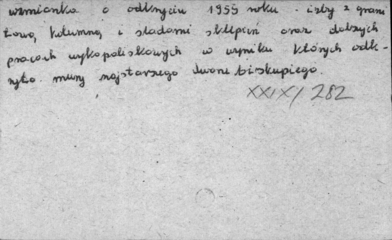 wzmianka o odkryciu 1955 roku izby z grani
tową kolumną i śladami sklepień oraz dalszych
pracach wykopaliskowych w wyniku których odk-
ryto mury najstarszego dworu biskupiego.
XXIX/282